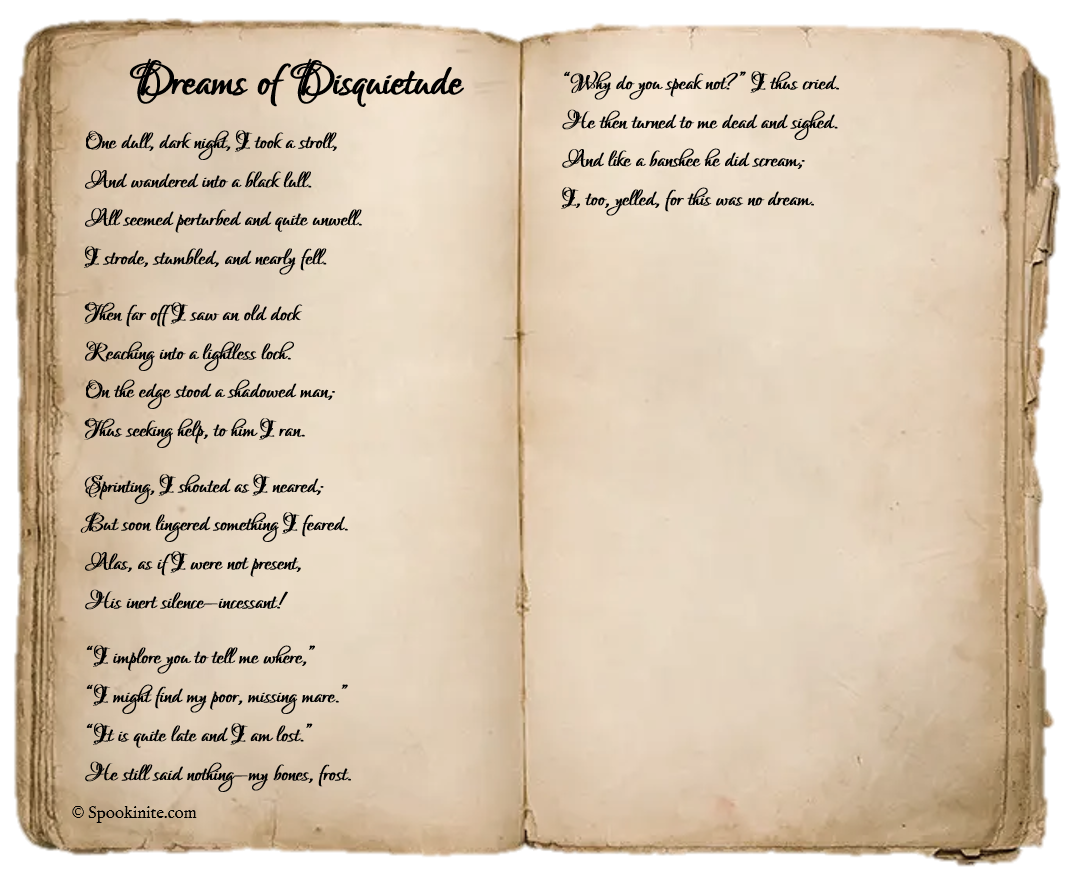 Dreams of Disquietude
One dull, dark night, I took a stroll,
And wandered into a black lull.
All seemed perturbed and quite unwell.
I strode, stumbled, and nearly fell.
Then far off I saw an old dock
Reaching into a lightless loch.
On the edge stood a shadowed man;
Thus seeking help, to him I ran.
Sprinting, I shouted as I neared;
But soon lingered something I feared.
Alas, as if I were not present,
His inert silence—incessant!
“I implore you to tell me where,”
“I might find my poor, missing mare.”
“It is quite late and I am lost.”
He still said nothing—my bones, frost.
© Spookinite.com
“Why do you speak not?” I thus cried.
He then turned to me dead and sighed.
And like a banshee he did scream;
I, too, yelled, for this was no dream.